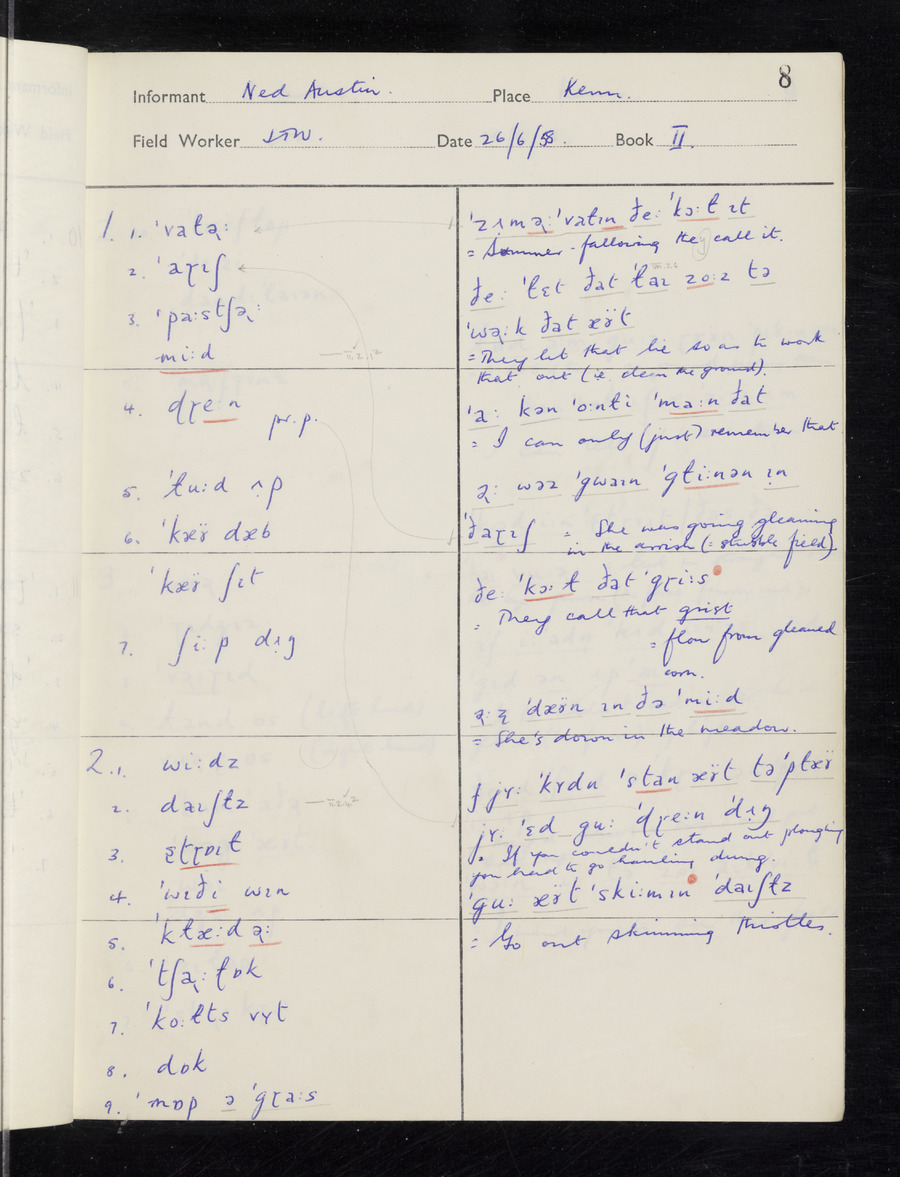 8
Informant Ned Austin. Place Kenn.
Field Worker JTW. Date 26/6/58. Book II.
1. 1. ˈvatəɽː
2. ˈaɽɪʃ
3. ˈpaːstʃəɽː
miːd
4. dɽeːn
pr. p.
5. ˈɫuːd ʌp
6. ˈkæɤ̈ dæb
ˈkæɤ̈ ʃɪt
7. ʃiːp dɪŋ
2. 1. wiːdz
2. daɪʃɫz
3. ɛtɽɒɪt
4. ˈwɪði wɪn
5. ˈkɫæːdəː
6. ˈtʃəɽːɫɒk
7. ˈkoːɫts vʏt
8. dɒk
9. ˈmɒp ə ˈgɽaːs
= Summer-following they call it.
ðeː ˈɫɛt ðat ˈɫaɪ zoːz tə
ˈwəːk ðat æɤ̈t
= They let that lie so as to work
that out (i.e. clean the ground).
ˈaː kən ˈoːnɫi ˈmaːn ðat
= I can only (just) remember that
əː wəz ˈgwaɪn ˈgɫiːnən ɪn
ˈðaɽɪʃ = She was going gleaning
in the arrish (= stubble field)
ðeː ˈkɔːɫ ðat ˈgɽiːs
= They call that grist
= flour from gleaned
corn.
əːz ˈdæɤ̈n ɪn ðə ˈmiːd
= She's down in the meadow.
f jʏː ˈkʏdn ˈstan æɤ̈t tə ˈpɫæɤ̈
jʏː ˈɛd guː ˈdɽeːn ˈdɪŋ
= If you couldn't stand out ploughing
you had to go hauling dung.
ˈguː æɤ̈t ˈskiːmɪn ˈdaɪʃɫz
= Go out skimming thistles.